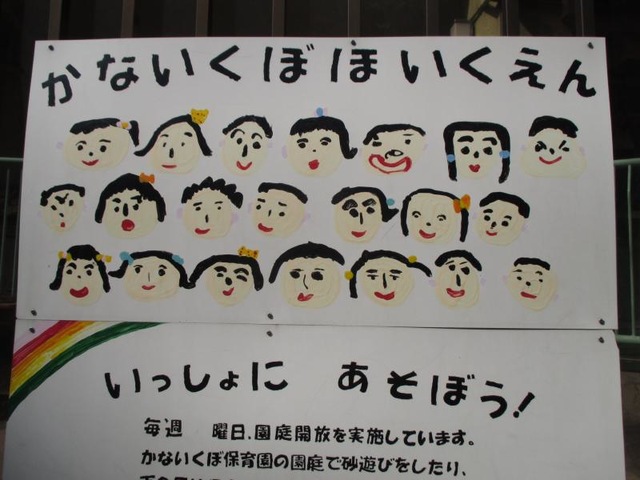 かないくぼほいくえん
いっしょに あそぼう!
毎週 曜日、園庭開放を実施しています。
かないくぼ保育園の園庭で砂遊びをしたり、